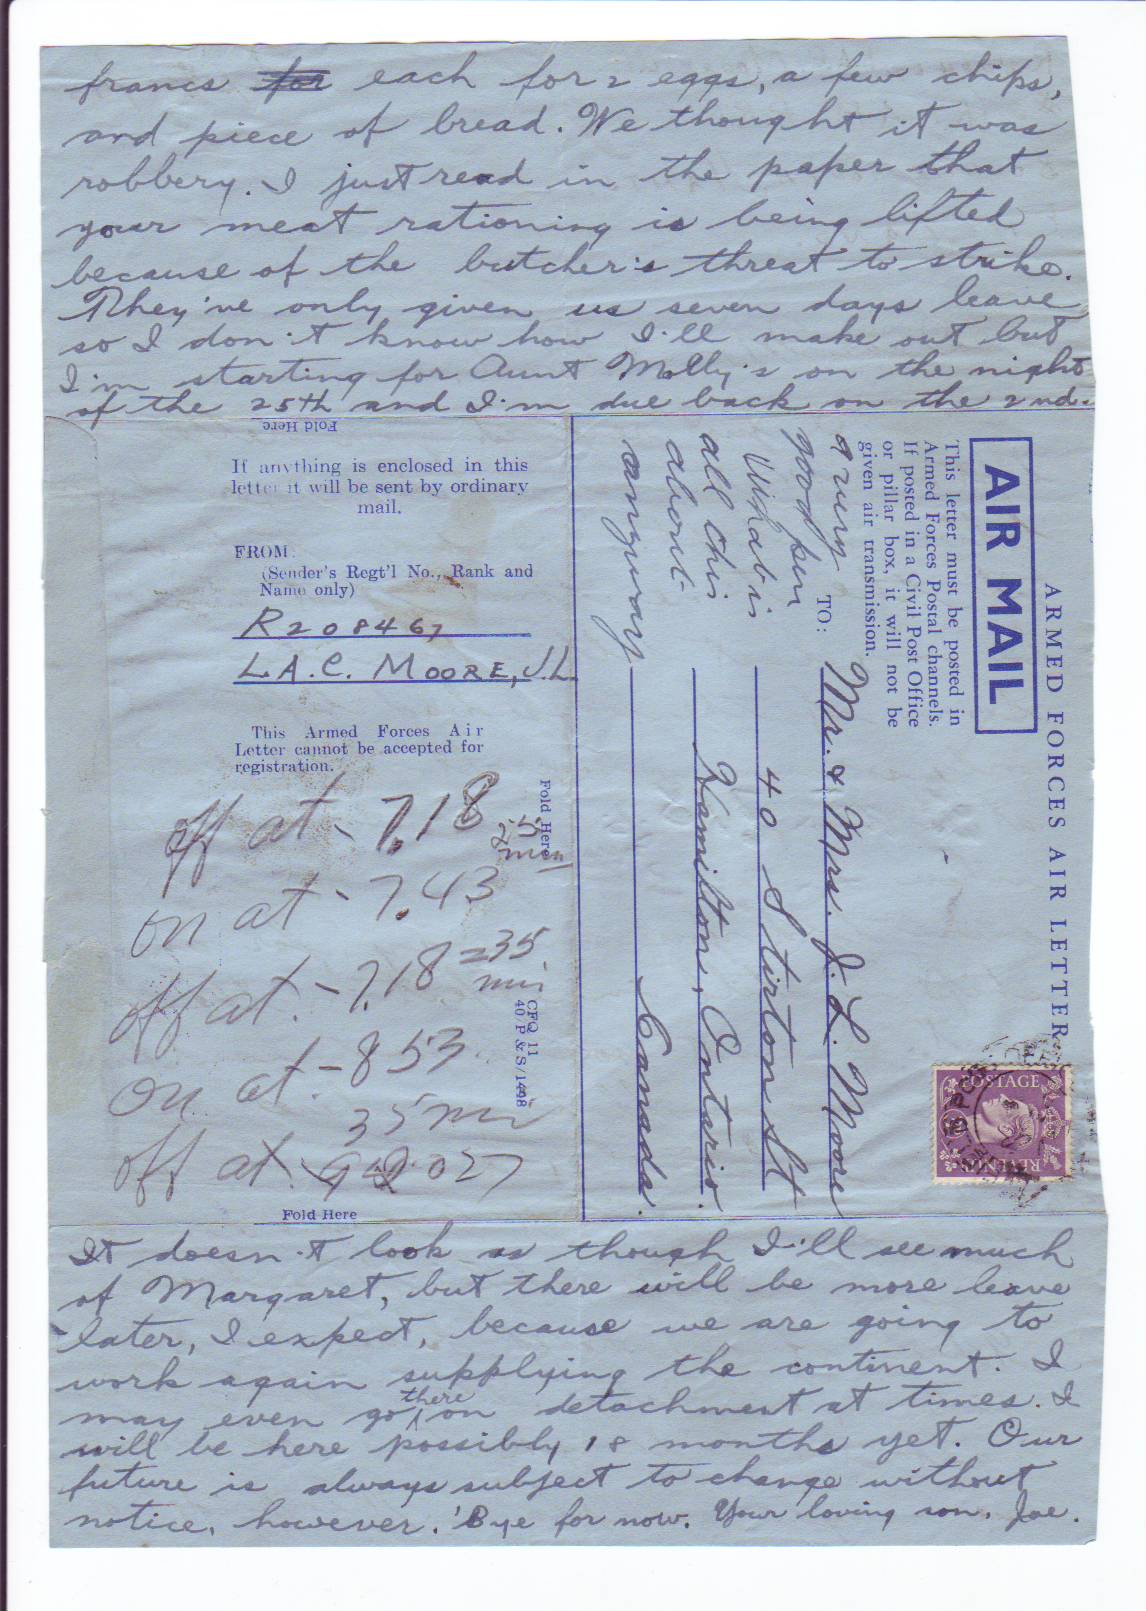 francs for each for 2 eggs, a few chips,
and piece of bread. We thought it was
robbery. I just read in the paper that
your meat rationing is being lifted
because of the butcher's threat to strike.
They've only given us seven days leave
so I don't know how I'll make out but
I'm starting for Aunt Molly's on the night
of the 25th and I'm due back on the 2nd.
Fold Here
If anything is enclosed in this
letter it will be sent by ordinary
mail.
FROM:
(Sender's Regt'l No., Rank and
Name only)
R208467
L.A.C. MOORE, J.L.
This Armed Forces Air
Letter cannot be accepted for
registration.
Fold Here
off at - 7.18
25
min
on at - 7.43
off at - 7.18 = 35
min
on at - 853
35 min
off at 027
CFQ 11
40/P & S/1498
Fold Here
ARMED FORCES AIR LETTER
AIR MAIL
This letter must be posted in
Armed Forces Postal channels.
If posted in a Civil Post Office
or pillar box, it will not be
given air transmission.
TO:
Mr. & Mrs. J. L. Moore
40 Stirton St
Hamilton, Ontario.
Canada.
a very
good pen
What is
all this
about
anyway
POSTAGE
REVENUE
It doesn't look as though I'll see much
of Margaret, but there will be more leave
later, I expect, because we are going to
work again supplying the continent. I
may even go there on detachment at times. I
will be here possibly 18 months yet. Our
future is always subject to change without
notice, however. 'Bye for now. Your loving son, Joe.